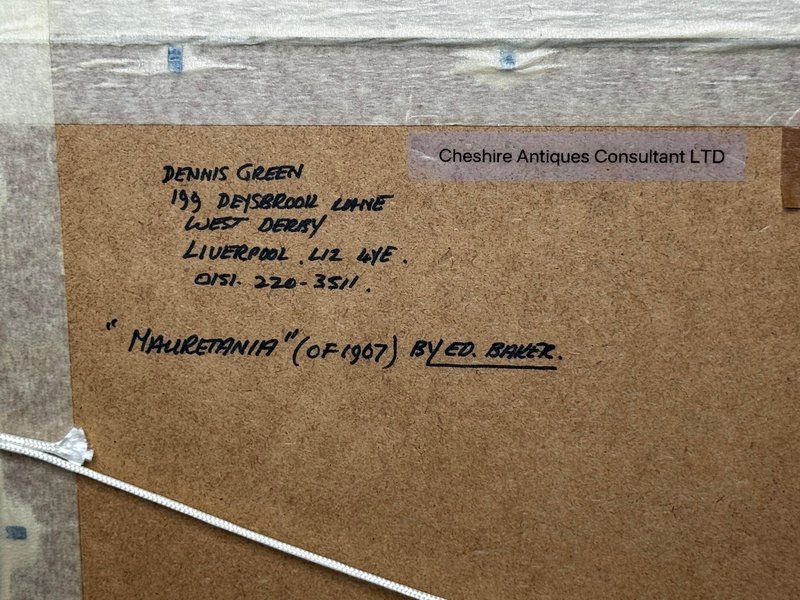 Cheshire Antiques Consultant LTD
DENNIS GREEN
199 DEYSBROOK LANE
WEST DERBY
LIVERPOOL. L12 4YE.
0151. 220-3511.
"MAURETANIA" (OF 1907) BY ED. BAKER.